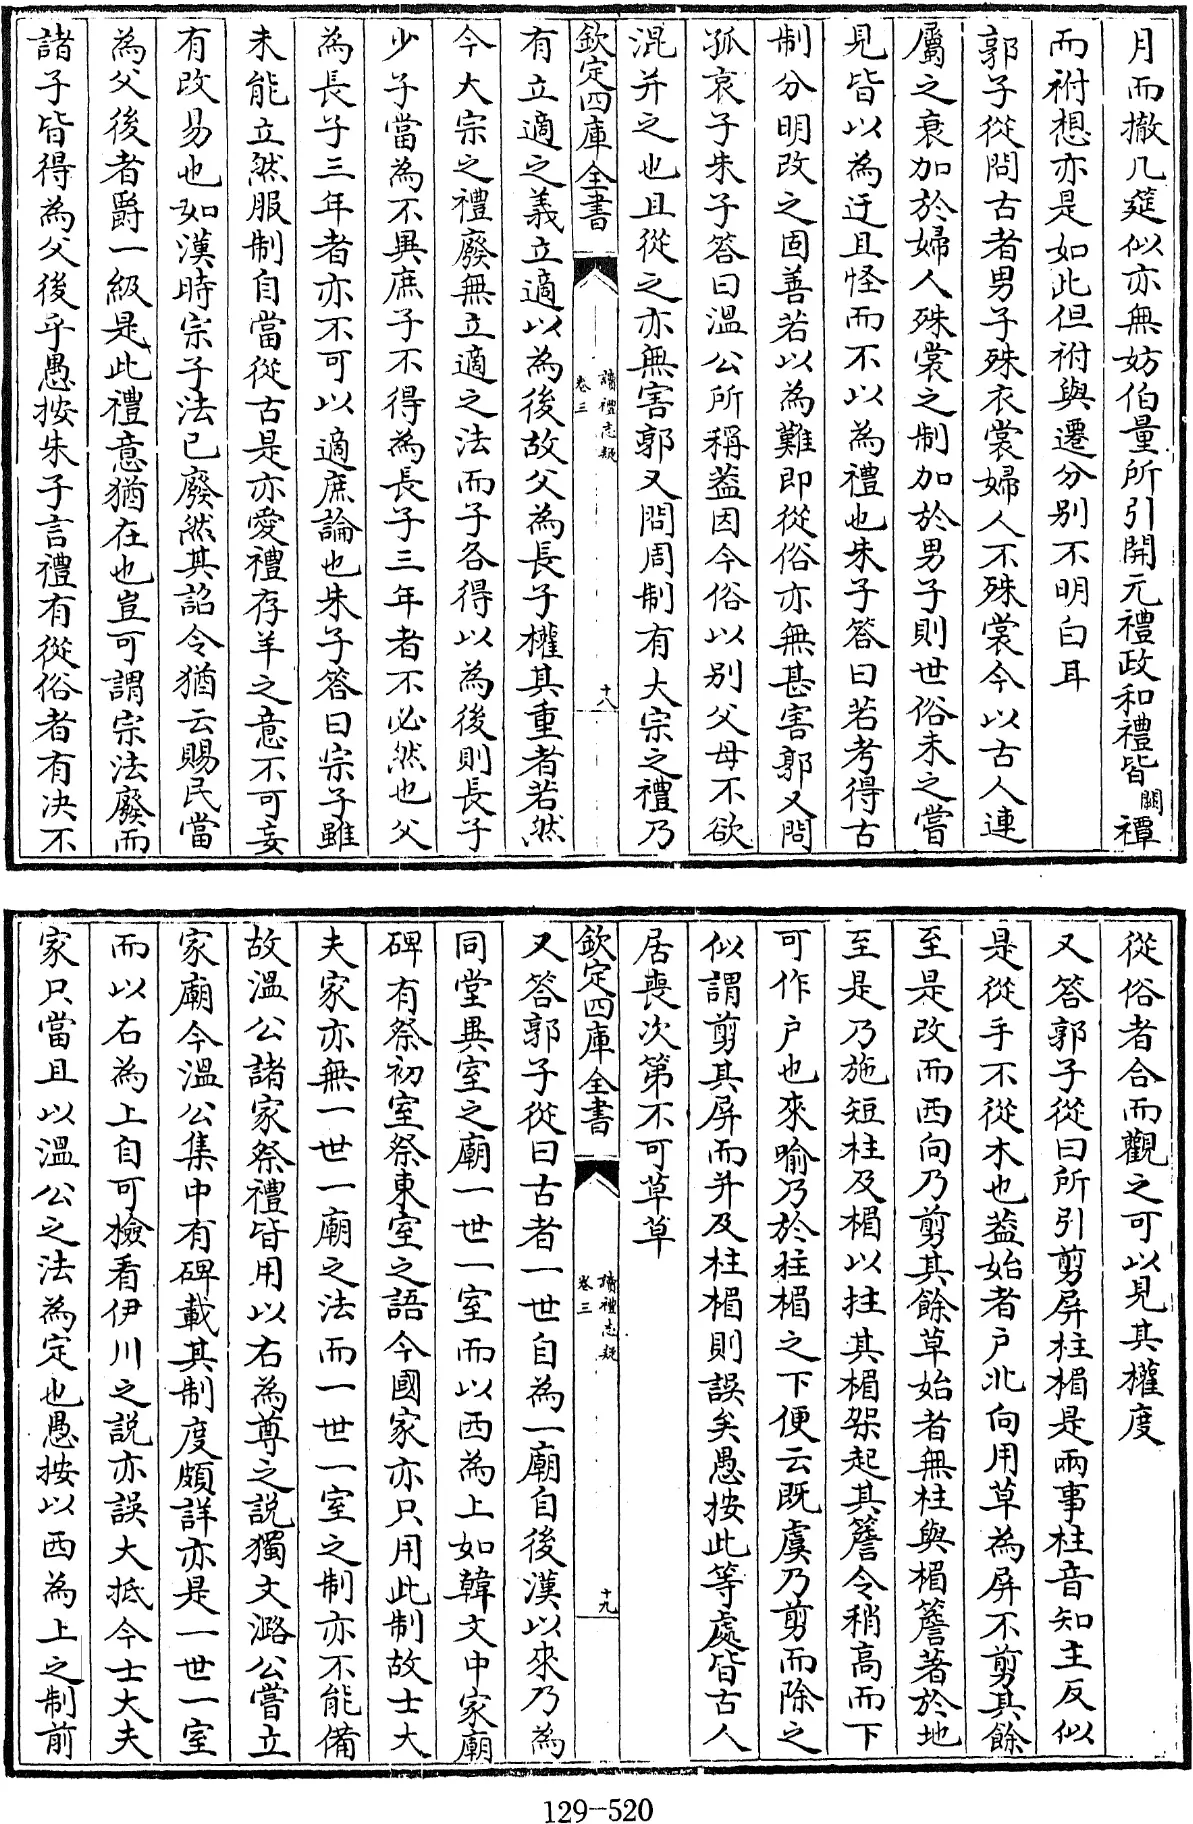 月而撤几筵似亦無妨伯量所引開元禮政和禮皆闕禫
而祔想亦是如此但祔與遷分别不明白耳
郭子從問古者男子殊衣裳婦人不殊裳今以古人連
屬之衰加於婦人殊裳之制加於男子則世俗未之嘗
見皆以為迂且怪而不以為禮也朱子答曰若考得古
制分明改之固善若以為難即從俗亦無甚害郭又問
孤哀子朱子答曰温公所稱葢因今俗以别父母不欲
混并之也且從之亦無害郭又問周制有大宗之禮乃
欽定四庫全書
讀禮志疑
卷三
十八
有立適之義立適以為後故父為長子權其重者若然
今大宗之禮廢無立適之法而子各得以為後則長子
少子當為不異庶子不得為長子三年者不必然也父
為長子三年者亦不可以適庶論也朱子答曰宗子雖
未能立然服制自當從古是亦愛禮存羊之意不可妄
有改易也如漢時宗子法已廢然其詔令猶云賜民當
為父後者爵一級是此禮意猶在也豈可謂宗法廢而
諸子皆得為父後乎愚按朱子言禮有從俗者有决不
從俗者合而觀之可以見其權度
又答郭子從曰所引剪屏柱楣是兩事柱音知主反似
是從手不從木也葢始者戸北向用草為屏不剪其餘
至是改而西向乃剪其餘草始者無柱與楣簷著於地
至是乃施短柱及楣以拄其楣架起其簷令稍高而下
可作戸也來喻乃於拄楣之下便云既虞乃剪而除之
似謂剪其屏而并及柱楣則誤矣愚按此等處皆古人
居喪次第不可草草
欽定四庫全書
讀禮志疑
卷三
十九
又答郭子從曰古者一世自為一廟自後漢以來乃為
同堂異室之廟一世一室而以西為上如韓文中家廟
碑有祭初室祭東室之語今國家亦只用此制故士大
夫家亦無一世一廟之法而一世一室之制亦不能備
故溫公諸家祭禮皆用以右為尊之説獨文潞公嘗立
家廟今溫公集中有碑載其制度頗詳亦是一世一室
而以右為上自可檢看伊川之説亦誤大抵今士大夫
家只當且以溫公之法為定也愚按以西為上之制前
129-520